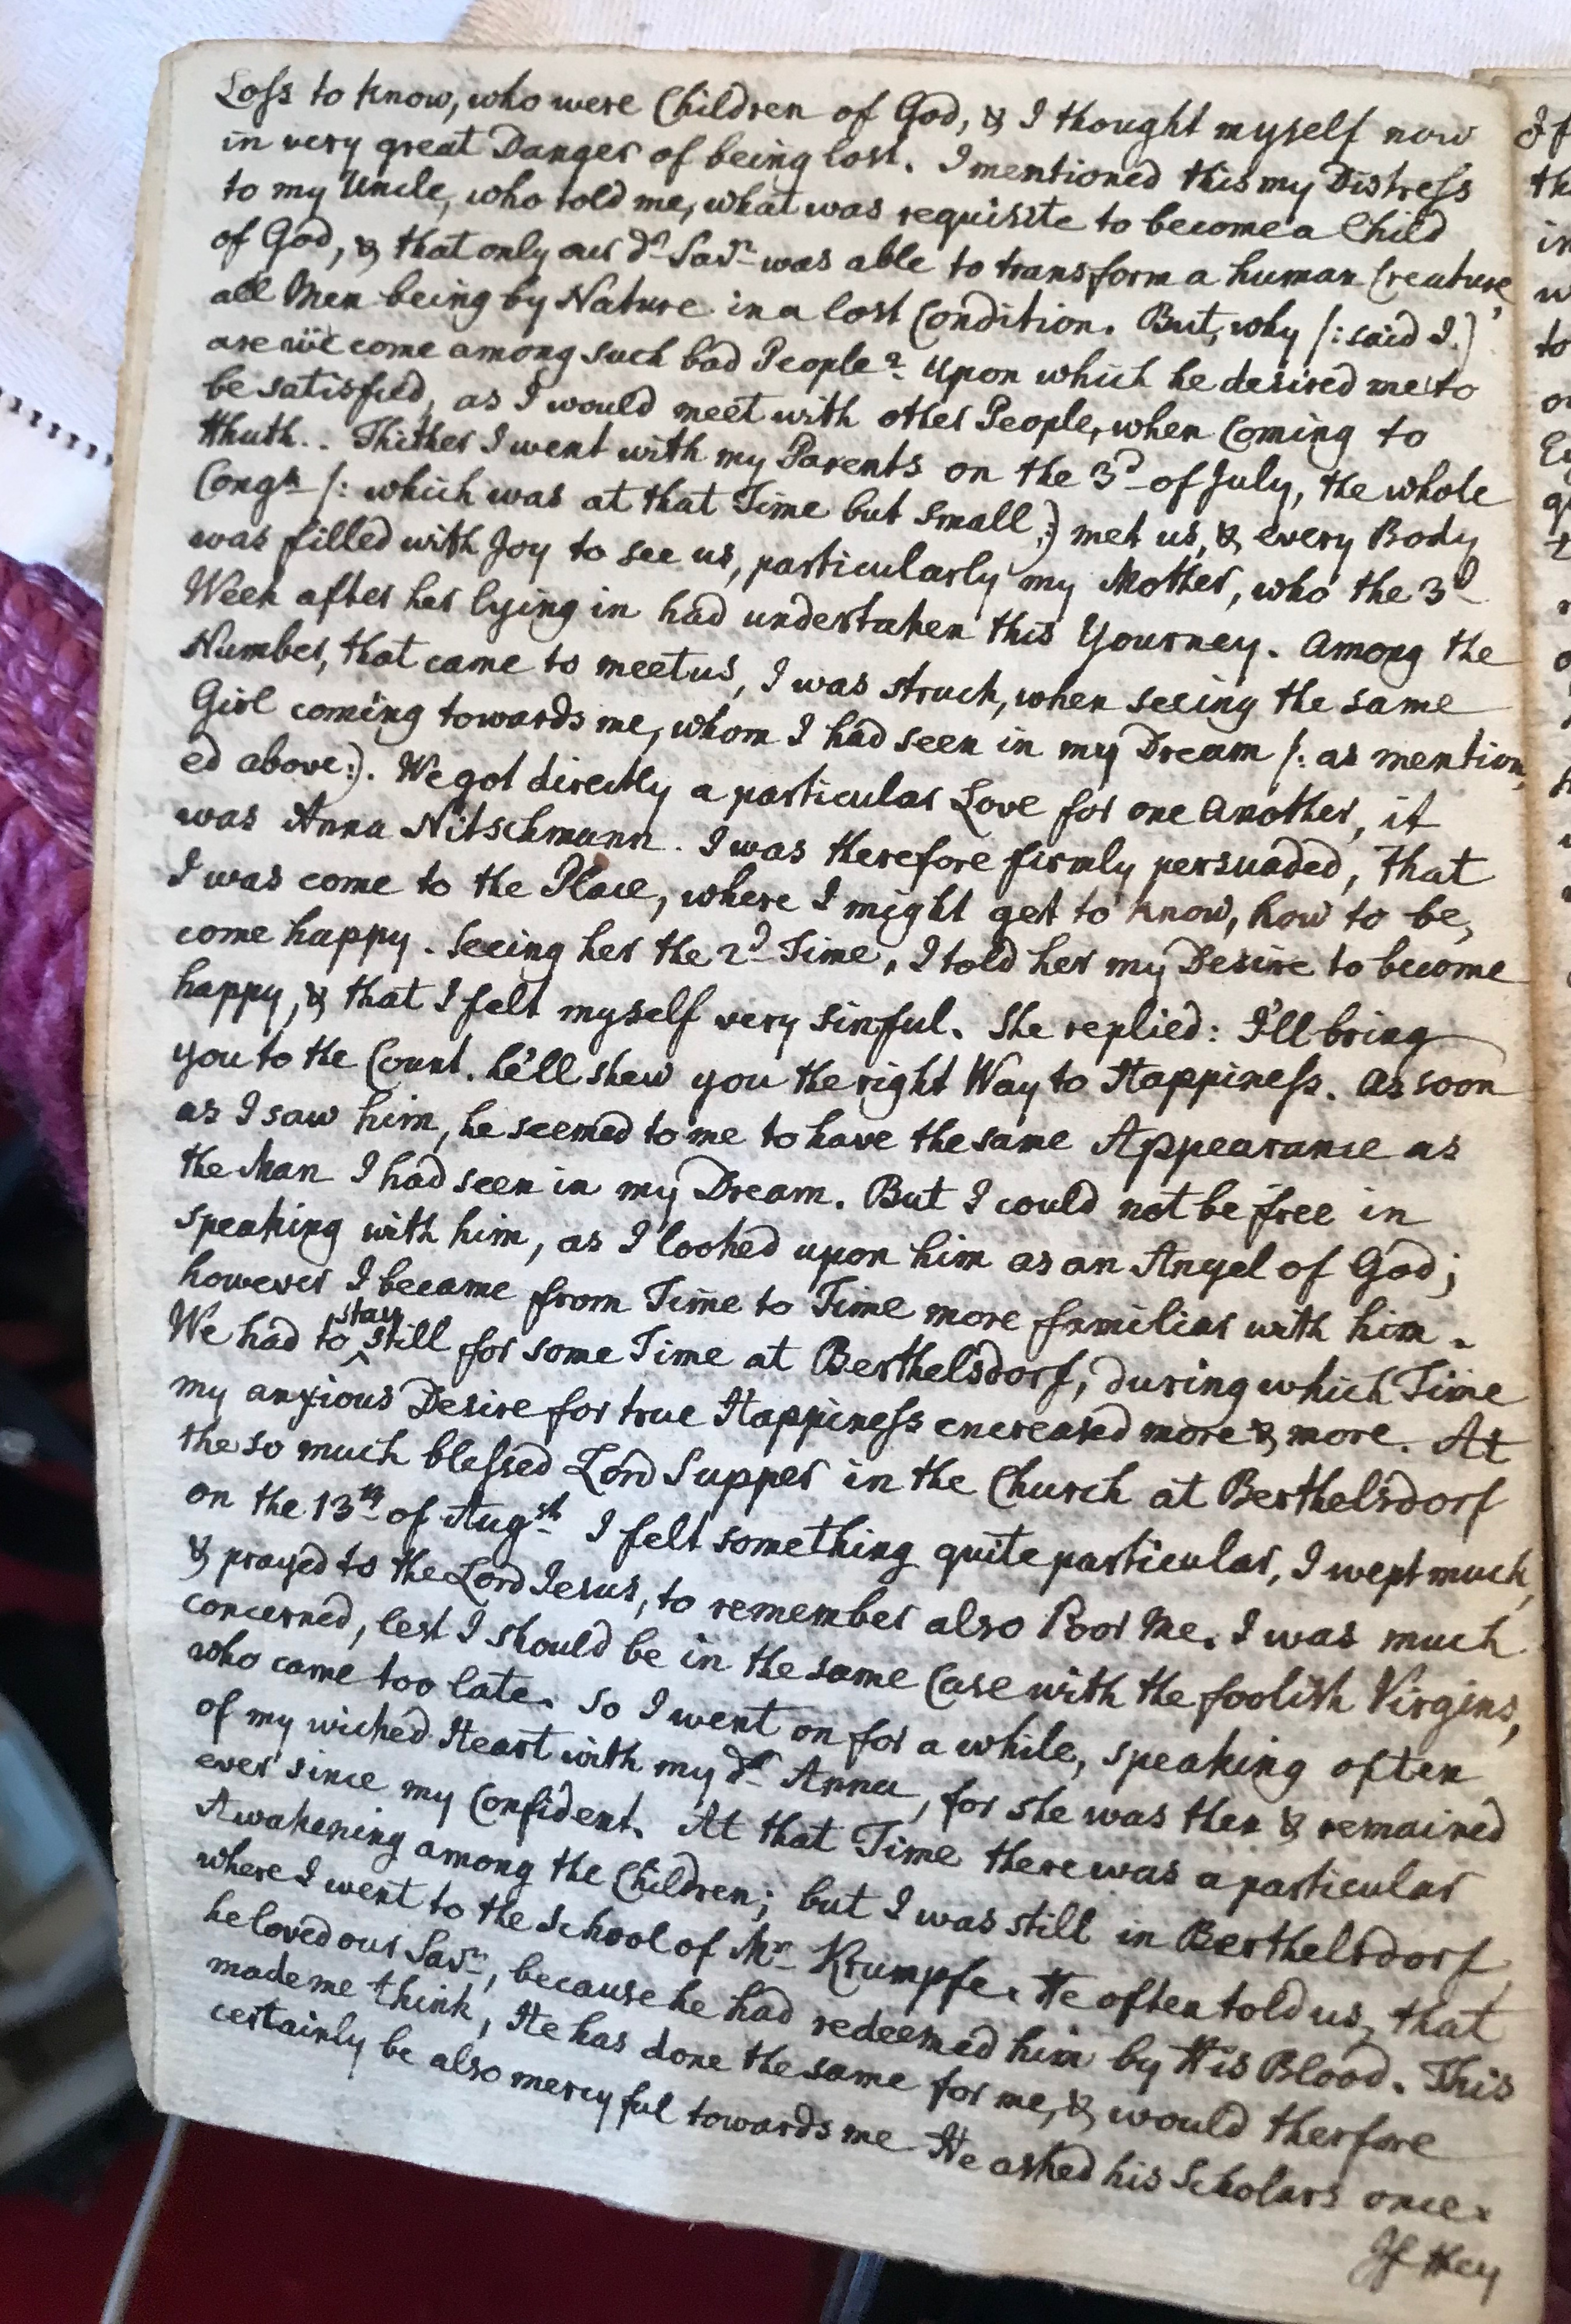 Loss to know, who were Children of God, & I thought myself now
in very great Danger of being lost. I mentioned this my Distress
to my Uncle, who told me, what was requisite to become a Child
of God, & that only our dr Savr was able to transform a human Creature,
all Men being by Nature in a lost Condition. But, why /: said I :/
are we come among such bad People? Upon which he desired me to
be satisfied, as I would meet with other People, when coming to
Hhuth. Thither I went with my Parents on the 3d of July, the whole
Congn /: which was at that Time but small :/ met us, & every Body
was filled with Joy to see us, particularly my Mother, who the 3d
Week after her lying in had undertaken this Yourney. Among the
Number, that came to meet us, I was struck, when seeing the same
Girl coming towards me, whom I had seen in my Dream /: as mention,
ed above :/. We got directly a particular Love for one another, it
was Anna Nitschmann. I was therefore firmly persuaded, that
I was come to the Place, where I might get to know, how to be,
come happy. Seeing her the 2d Time, I told her my Desire to become
happy, & that I felt myself very sinful. She replied: I'll bring
you to the Count. he'll shew you the right Way to Happiness. As soon
as I saw him, he seemed to me to have the same Appearance as
the Man I had seen in my Dream. But I could not be free in
speaking with him, as I looked upon him as an Angel of God;
however I became from Time to Time more familiar with him.
We had to stay still for some Time at Berthelsdorf, during which Time
my anxious Desire for true Happiness encreased more & more. At
the so much blessed Lord Supper in the Church at Berthelsdorf
on the 13th of Augst I felt something quite particular, I wept much,
& prayed to the Lord Jesus, to remember also Poor Me. I was much
concerned, lest I should be in the same Case with the foolish Virgins,
who came too late. So I went on for a while, speaking often
of my wicked Heart with my dr Anna, for she was then & remained
ever since my Confident. At that Time there was a particular
Awakening among the Children; but I was still in Berthelsdorf,
where I went to the School of Mr Krumpfe. He often told us, that
he loved our Savr, because he had redeemed him by His Blood. This
made me think, He has done the same for me, & would therfore
certainly be also mercyful towards me He asked his Scholars once.
If they